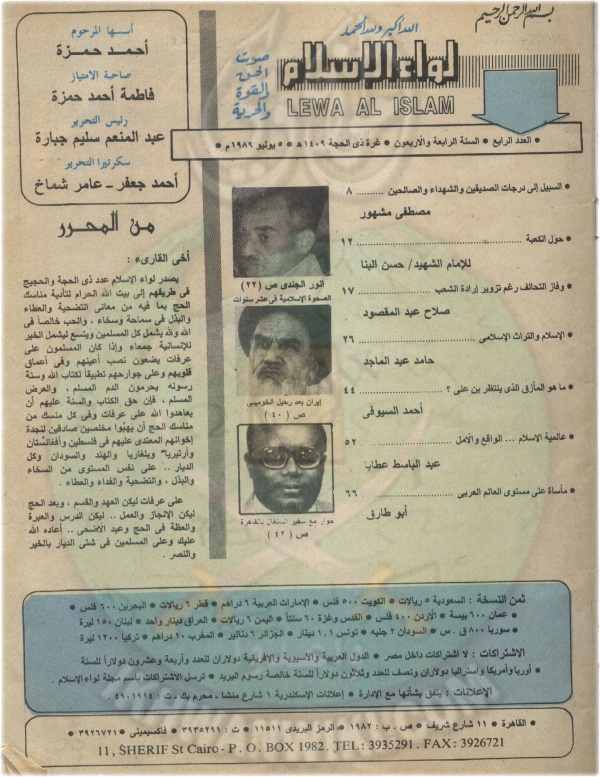 بسم الله الرحمن الرحيم
الله أكبر ولله الحمد
لواء الإسلام
LEWA AL ISLAM
صوت
الحق
والقوة
والحرية
أسسها المرحوم
أحمد حمزة
صاحبة الامتياز
فاطمة أحمد حمزة
رئيس التحرير
عبد المنعم سليم جبارة
سكرتيرا التحرير
أحمد جعفر - عامر شماخ
• العدد الرابع • السنة الرابعة والأربعون • غرة ذى الحجة ١٤٠٩هـ • ٥ يوليو ١٩٨٩م •
• السبيل إلى درجات الصديقين والشهداء والصالحين .......... ٨
مصطفى مشهور
• حول الكعبة .......... ١٢
للإمام الشهيد/ حسن البنا
• وفاز التحالف رغم تزوير إرادة الشعب .......... ١٧
صلاح عبد المقصود
• الإسلام والتراث الإسلامى .......... ٢٦
حامد عبد الماجد
• ما هو المأزق الذى ينتظر بن على ؟ .......... ٤٤
أحمد السيوفى
• عالمية الإسلام ... الواقع والأمل .......... ٥٢
عبد الباسط عطايا
• مأساة على مستوى العالم العربى .......... ٦٦
أبو طارق
أنور الجندى ص (٢٢)
الصحوة الإسلامية فى عشر سنوات
إيران بعد رحيل الخومينى
ص (٤٠)
حوار مع سفير السنغال بالقاهرة
ص (٤٢)
من المحرر
أخى القارىء :
يصدر لواء الإسلام عدد ذى الحجة والحجيج
فى طريقهم إلى بيت الله الحرام لتأدية مناسك
الحج بما فيه من معانى التضحية والعطاء
والبذل فى سماحة وسخاء ، والحب خالصاً فى
الله ولله يشمل كل المسلمين ويتسع ليشمل الخير
للإنسانية جمعاء وإذا كان المسلمون على
عرفات يضعون نصب أعينهم وفى أعماق
قلوبهم وعلى جوارحهم تطبيقاً لكتاب الله وسنة
رسوله يحرمون الدم المسلم ، والعرض
المسلم ، فإن حق الكتاب والسنة عليهم أن
يعاهدوا الله على عرفات وفى كل منسك من
مناسك الحج أن يهبوا مخلصين صادقين لنجدة
إخوانهم المعتدى عليهم فى فلسطين وأفغانستان
وأرتيريا وبلغاريا والهند والسودان وكل
الديار .. على نفس المستوى من السخاء
والبذل ، والتضحية والفداء والعطاء .
على عرفات ليكن العهد والقسم ، وبعد الحج
ليكن الإنجاز والعمل .. ليكن الدرس والعبرة
والعظة فى الحج وعيد الأضحى .. أعاده الله
عليك وعلى المسلمين فى شتى الديار بالخير
والنصر .
ثمن النسخة : السعودية ٥ ريالات • الكويت ٥٠٠ فلس • الإمارات العربية ٦ دراهم • قطر ٦ ريالات • البحرين ٦٠٠ فلس •
عمان ٦٠٠ بيسة • الأردن ٤٠٠ فلس • القدس وغزة ٦٠ سنتاً • اليمن ٦ ريالات • العراق دينار واحد • لبنان ١٥٠ ليرة
سوريا ٨٠٠ ق . س • السودان ٢ جنيه • تونس ١،١ دينار • الجزائر ٦ دنانير • المغرب ١٠ دراهم • تركيا ١٢٠٠ ليرة
الاشتراكات : لا اشتراكات داخل مصر • الدول العربية والآسيوية والإفريقية دولاران للعدد وأربعة وعشرون دولاراً للسنة
• أوربا وأمريكا وأستراليا دولاران ونصف للعدد وثلاثون دولاراً للسنة خالصة رسوم البريد • ترسل الاشتراكات باسم مجلة لواء الإسلام .
الإعلانات : يتفق بشأنها مع الإدارة • إعلانات الإسكندرية ١ شارع منشا - محرم بك - ت : ٤٩٠١٩١٤ .
• القاهرة • ١١ شارع شريف • ص . ب : ١٩٨٢ • الرمز البريدى ١١٥١١ • ت : ٣٩٣٥٢٩١ • فاكسيميلى • ٣٩٢٦٧٢١ •
11, SHERIF St Cairo - P. O. BOX 1982. TEL: 3935291. FAX: 3926721